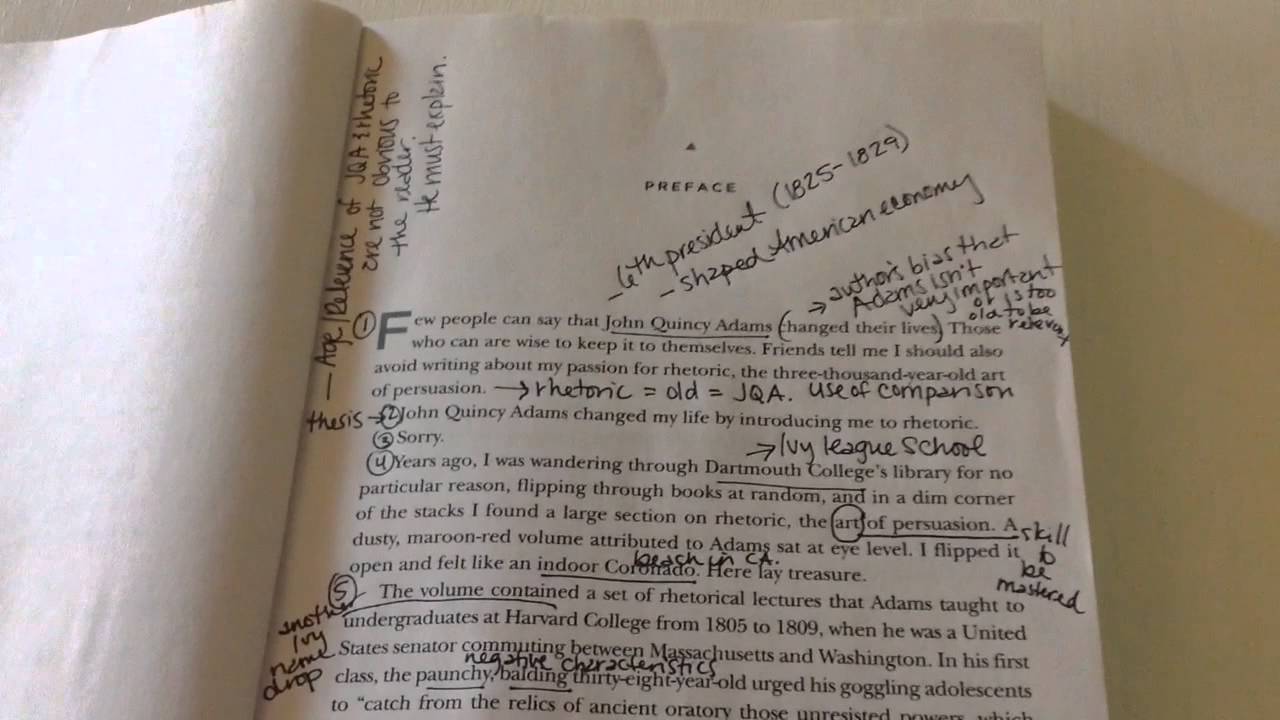 — Age/Relevence of JQA & rhetoric
are not obvious to
the reader.
He must explain.
PREFACE
- 6th president (1825-1829)
- shaped American economy
→ author's bias that
Adams isn't
very important
or is too
old to be
relevant
① Few people can say that John Quincy Adams (changed their lives) Those
who can are wise to keep it to themselves. Friends tell me I should also
avoid writing about my passion for rhetoric, the three-thousand-year-old art
of persuasion. → rhetoric = old = JQA. use of comparison
thesis → ② John Quincy Adams changed my life by introducing me to rhetoric.
③ Sorry.
→ Ivy league School
④ Years ago, I was wandering through Dartmouth College's library for no
particular reason, flipping through books at random, and in a dim corner
of the stacks I found a large section on rhetoric, the art of persuasion. A
skill
to
be
mastered
dusty, maroon-red volume attributed to Adams sat at eye level. I flipped it
beach in CA.
open and felt like an indoor Coronado. Here lay treasure.
⑤ The volume contained a set of rhetorical lectures that Adams taught to
another
Ivy
name
drop
undergraduates at Harvard College from 1805 to 1809, when he was a United
States senator commuting between Massachusetts and Washington. In his first
negative characteristics
class, the paunchy, balding thirty-eight-year-old urged his goggling adolescents
to "catch from the relics of ancient oratory those unresisted powers, which